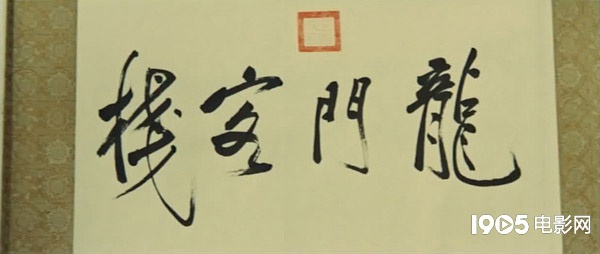 龍門客棧
1905电影网